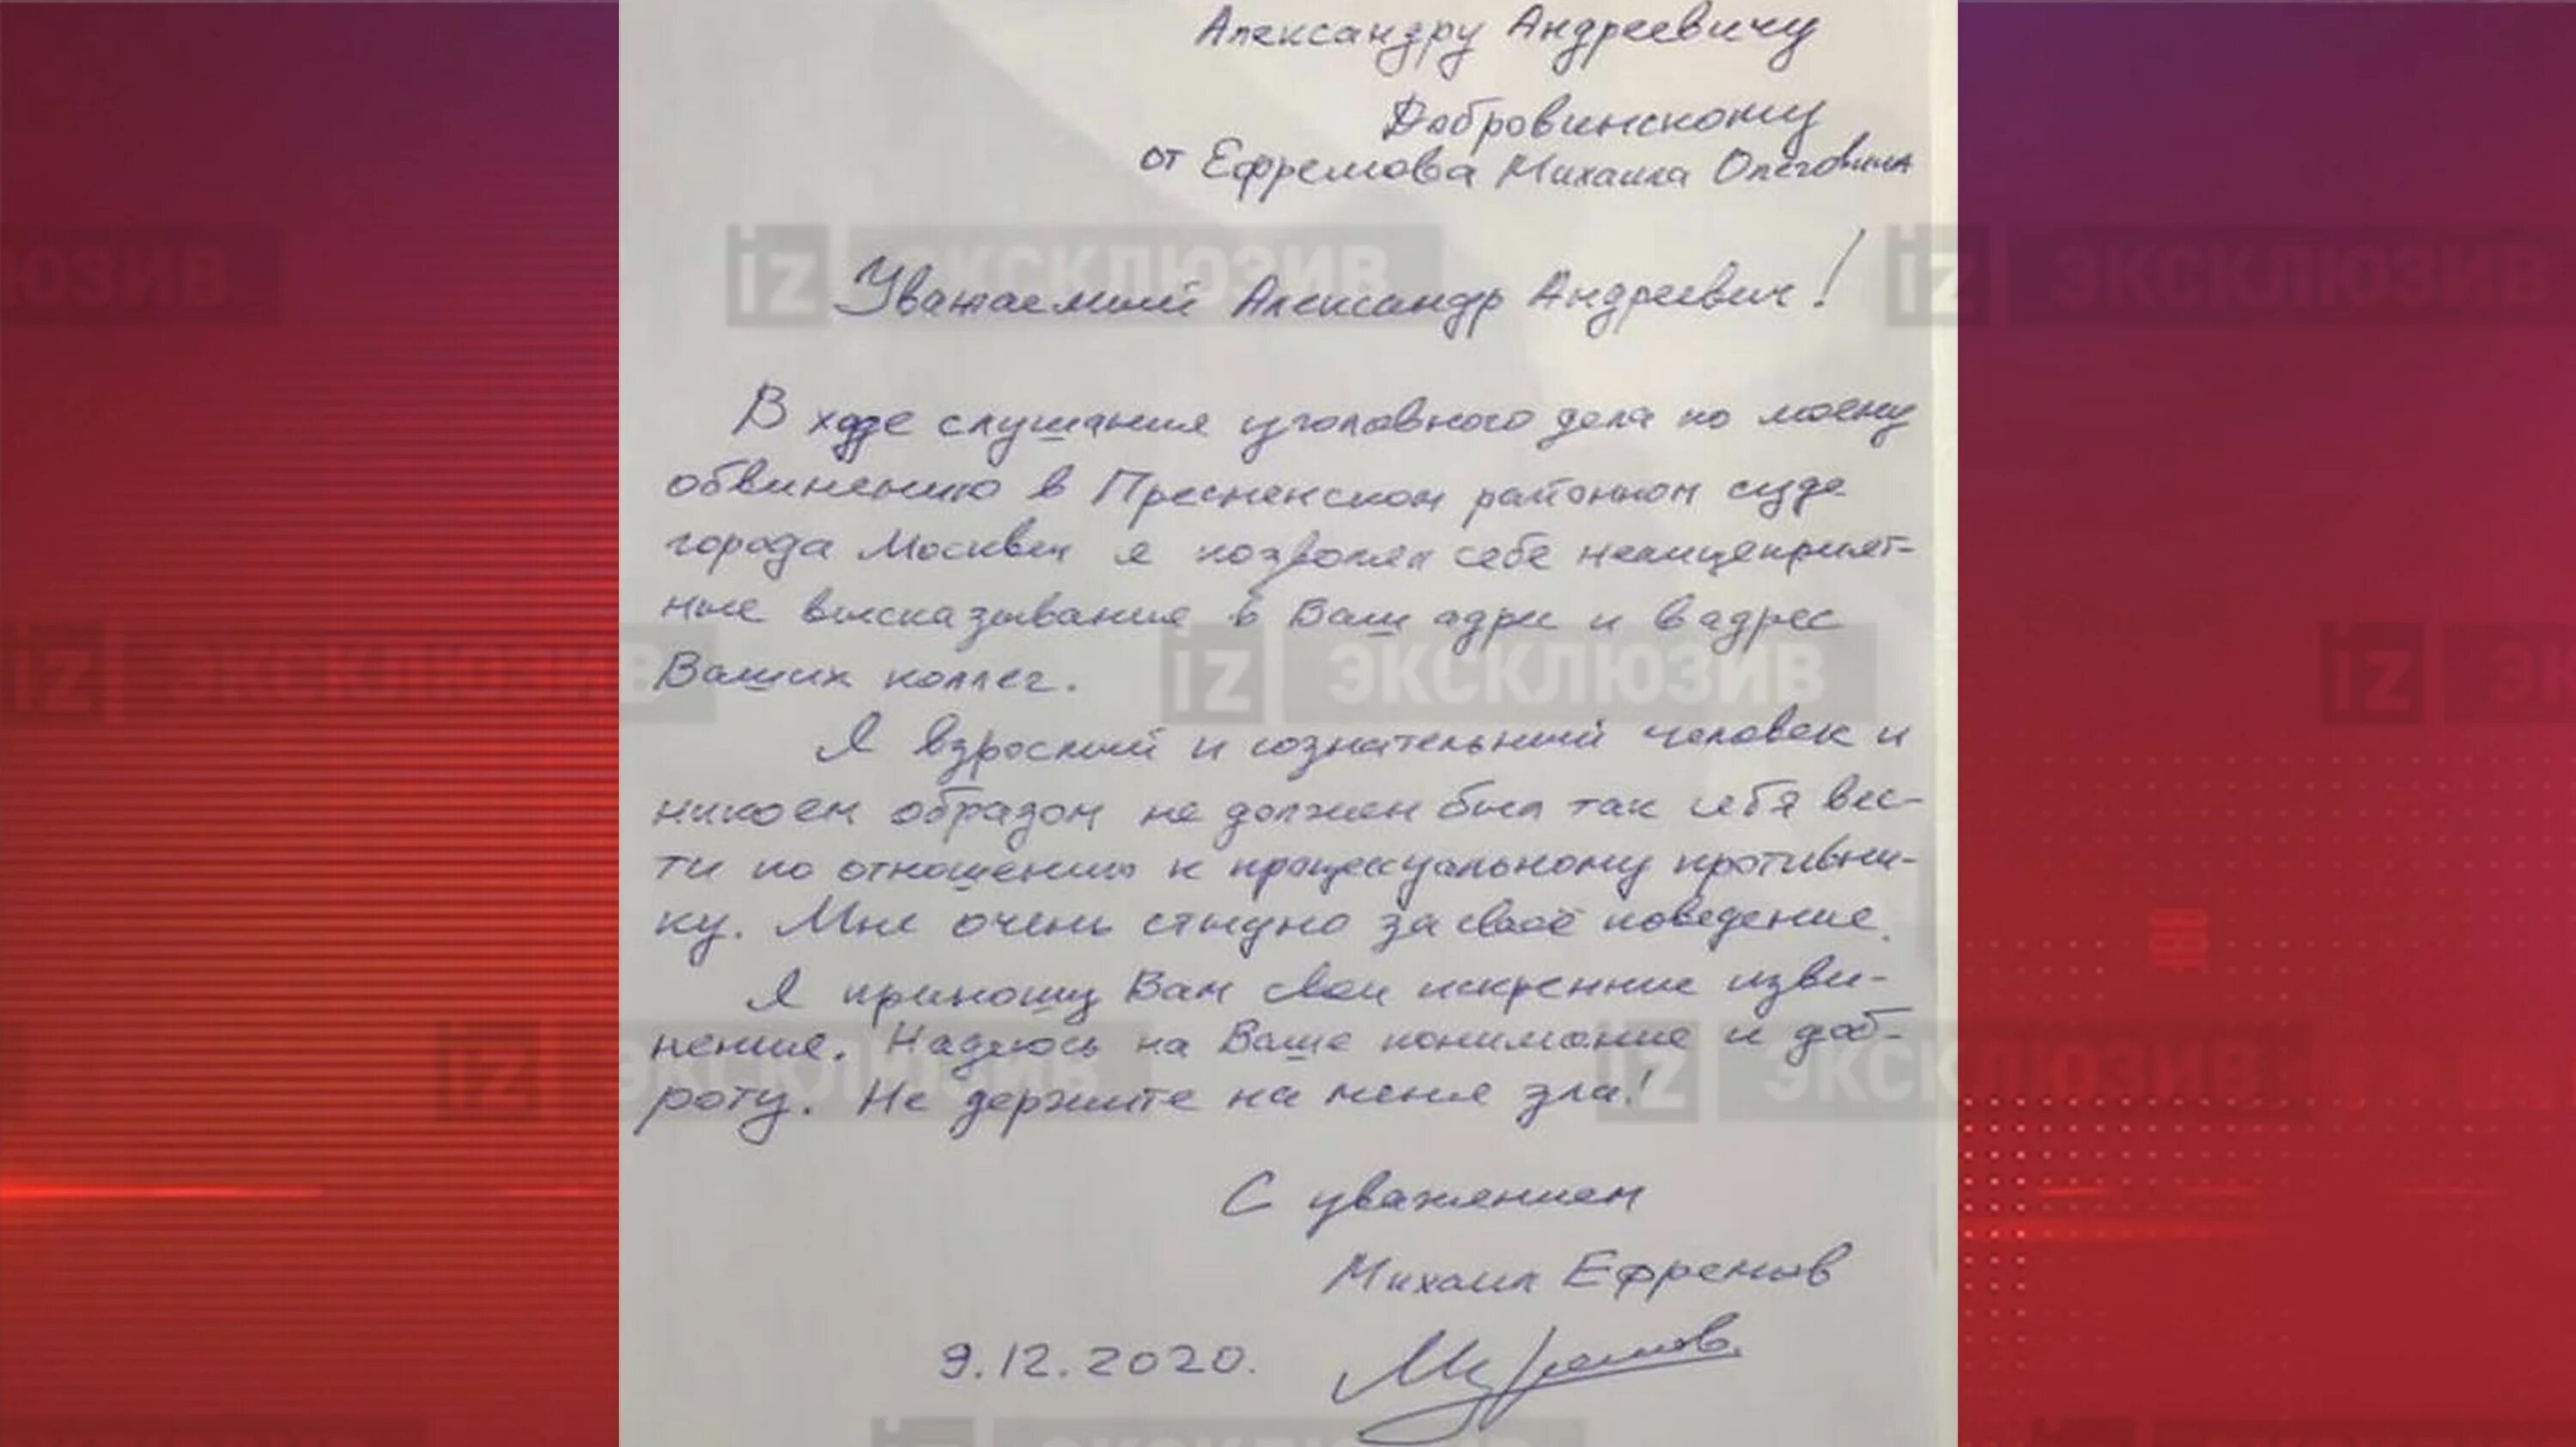 Александру Андреевичу
Добровинскому
от Ефремова Михаила Олеговича
iz ЭКСКЛЮЗИВ
Уважаемый Александр Андреевич!
В ходе слушания уголовного дела по моему
обвинению в Пресненском районном суде
города Москвы я позволял себе нелицеприят-
ные высказывания в Ваш адрес и в адрес
Ваших коллег.
iz ЭКСКЛЮЗИВ
Я взрослый и сознательный человек и
никоем образом не должен был так себя вес-
ти по отношению к процессуальному противни-
ку. Мне очень стыдно за своё поведение.
Я приношу Вам свои искренние изви-
нение. Надеюсь на Ваше понимание и доб-
роту. Не держите на меня зла!
iz ЭКСКЛЮЗИВ
С уважением
Михаил Ефремов
9.12.2020.